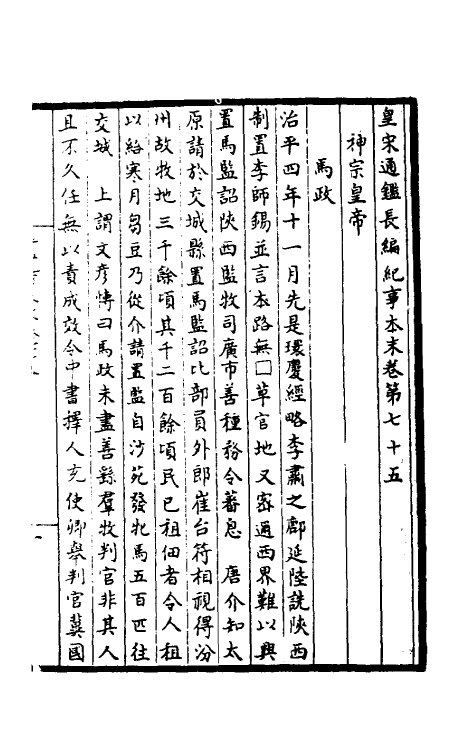 皇宋通鑑長編紀事本末卷第七十五
神宗皇帝
馬政
治平四年十一月先是環慶經略李肅之鄜延陸詵陝西
制置李師錫並言本路無□草官地又密邇西界難以興
置馬監詔陝西監牧司廣市善種務令蕃息　唐介知太
原請於交城縣置馬監詔比部員外郎崔台符相視得汾
州故牧地三千餘頃其千二百餘頃民已租佃者令人租
以給寒月芻豆乃從介請置監自沙苑發牝馬五百匹往
交城　上謂文彥博曰馬政未盡善繇羣牧判官非其人
且不久任無以責成效令中書擇人充使卿舉判官冀國